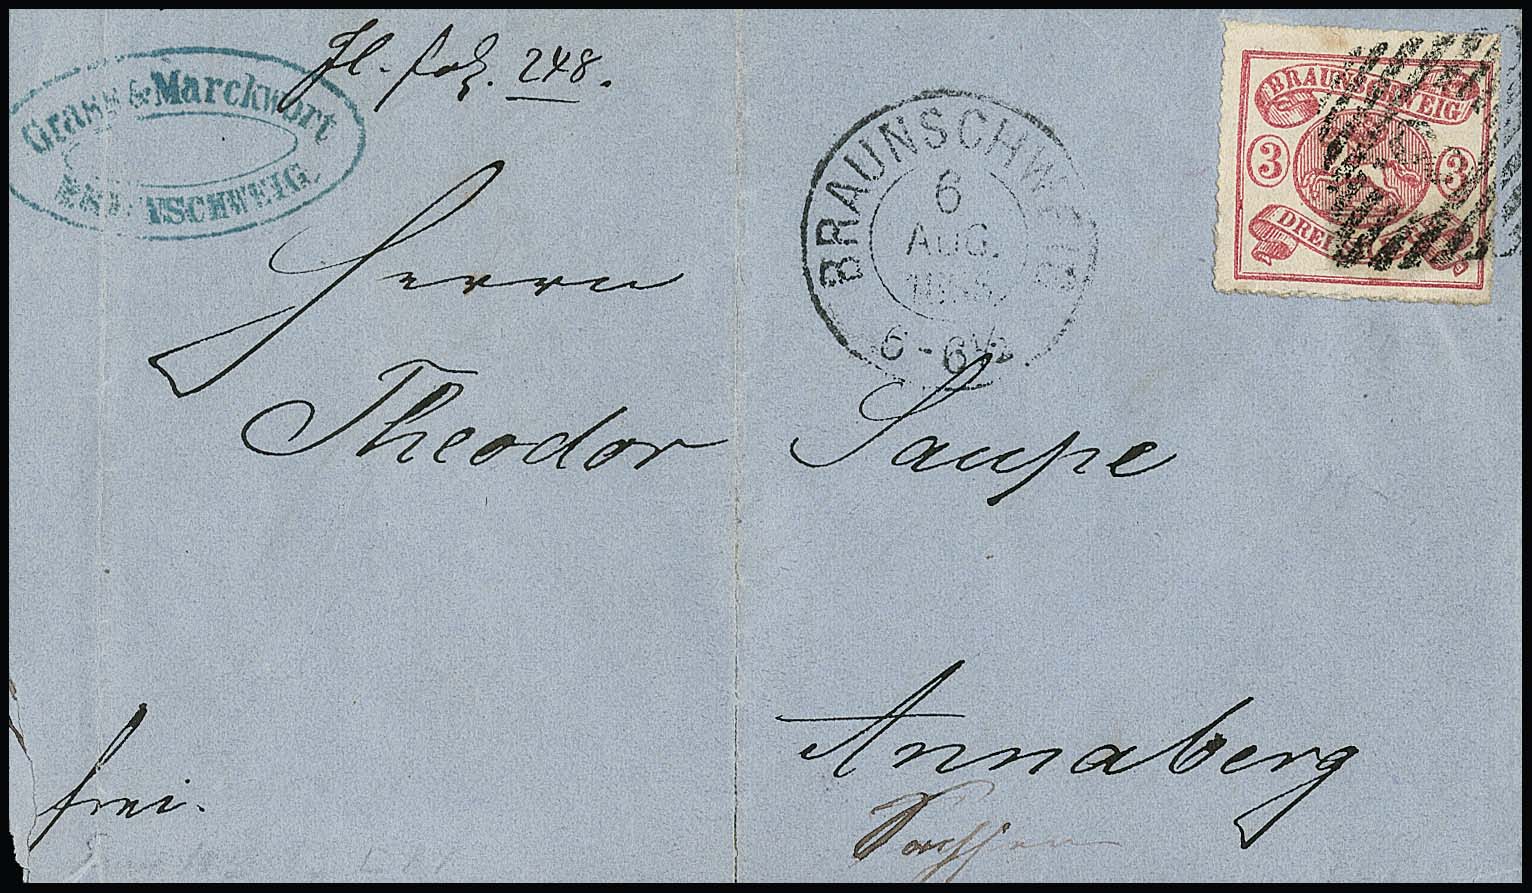 Grass & Marckwort
BRAUNSCHWEIG
248.
BRAUNSCHWEIG
6
AUG.
6-6½
BRAUNSCHWEIG
3 3
DREI
Herrn
Theodor Saupe
Annaberg
Sachsen
frei.